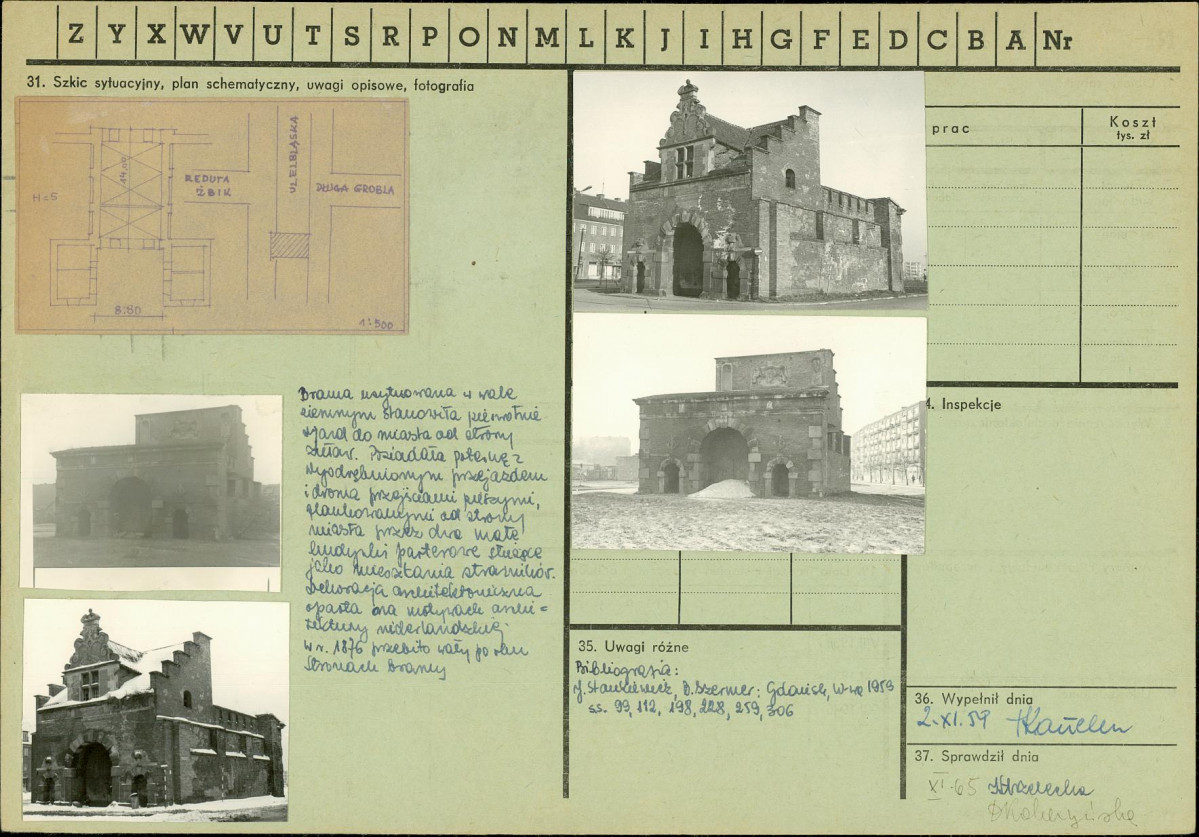 Z Y X W V U T S R P O N M L K J I H G F E D C B A Nr
31. Szkic sytuacyjny, plan schematyczny, uwagi opisowe, fotografia
H=5
14,00
8.60
REDUTA
ŻBIK
UL. ELBLĄSKA
DŁUGA GROBLA
1:500
Brama usytuowana w wale
ziemnym stanowiła pierwotnie
wjazd do miasta od strony
Żuław. Posiadała poternę z
wyodrębnionym przejazdem
i dwoma przejściami pieszymi,
flankowanymi od strony
miasta przez dwa małe
budynki parterowe służące
jako mieszkania strażników.
Dekoracja architektoniczna
oparta na motywach archi=
tektury niderlandzkiej.
W r. 1876 przebito wały po obu
stronach bramy
prac
Koszt
tys. zł
4. Inspekcje
35. Uwagi różne
Bibliografia:
J. Stankiewicz, B. Szermer: Gdańsk, W-wa 1959
ss. 99, 112, 198, 228, 259, 306
36. Wypełnił dnia
2.XI.59
37. Sprawdził dnia
XI.65